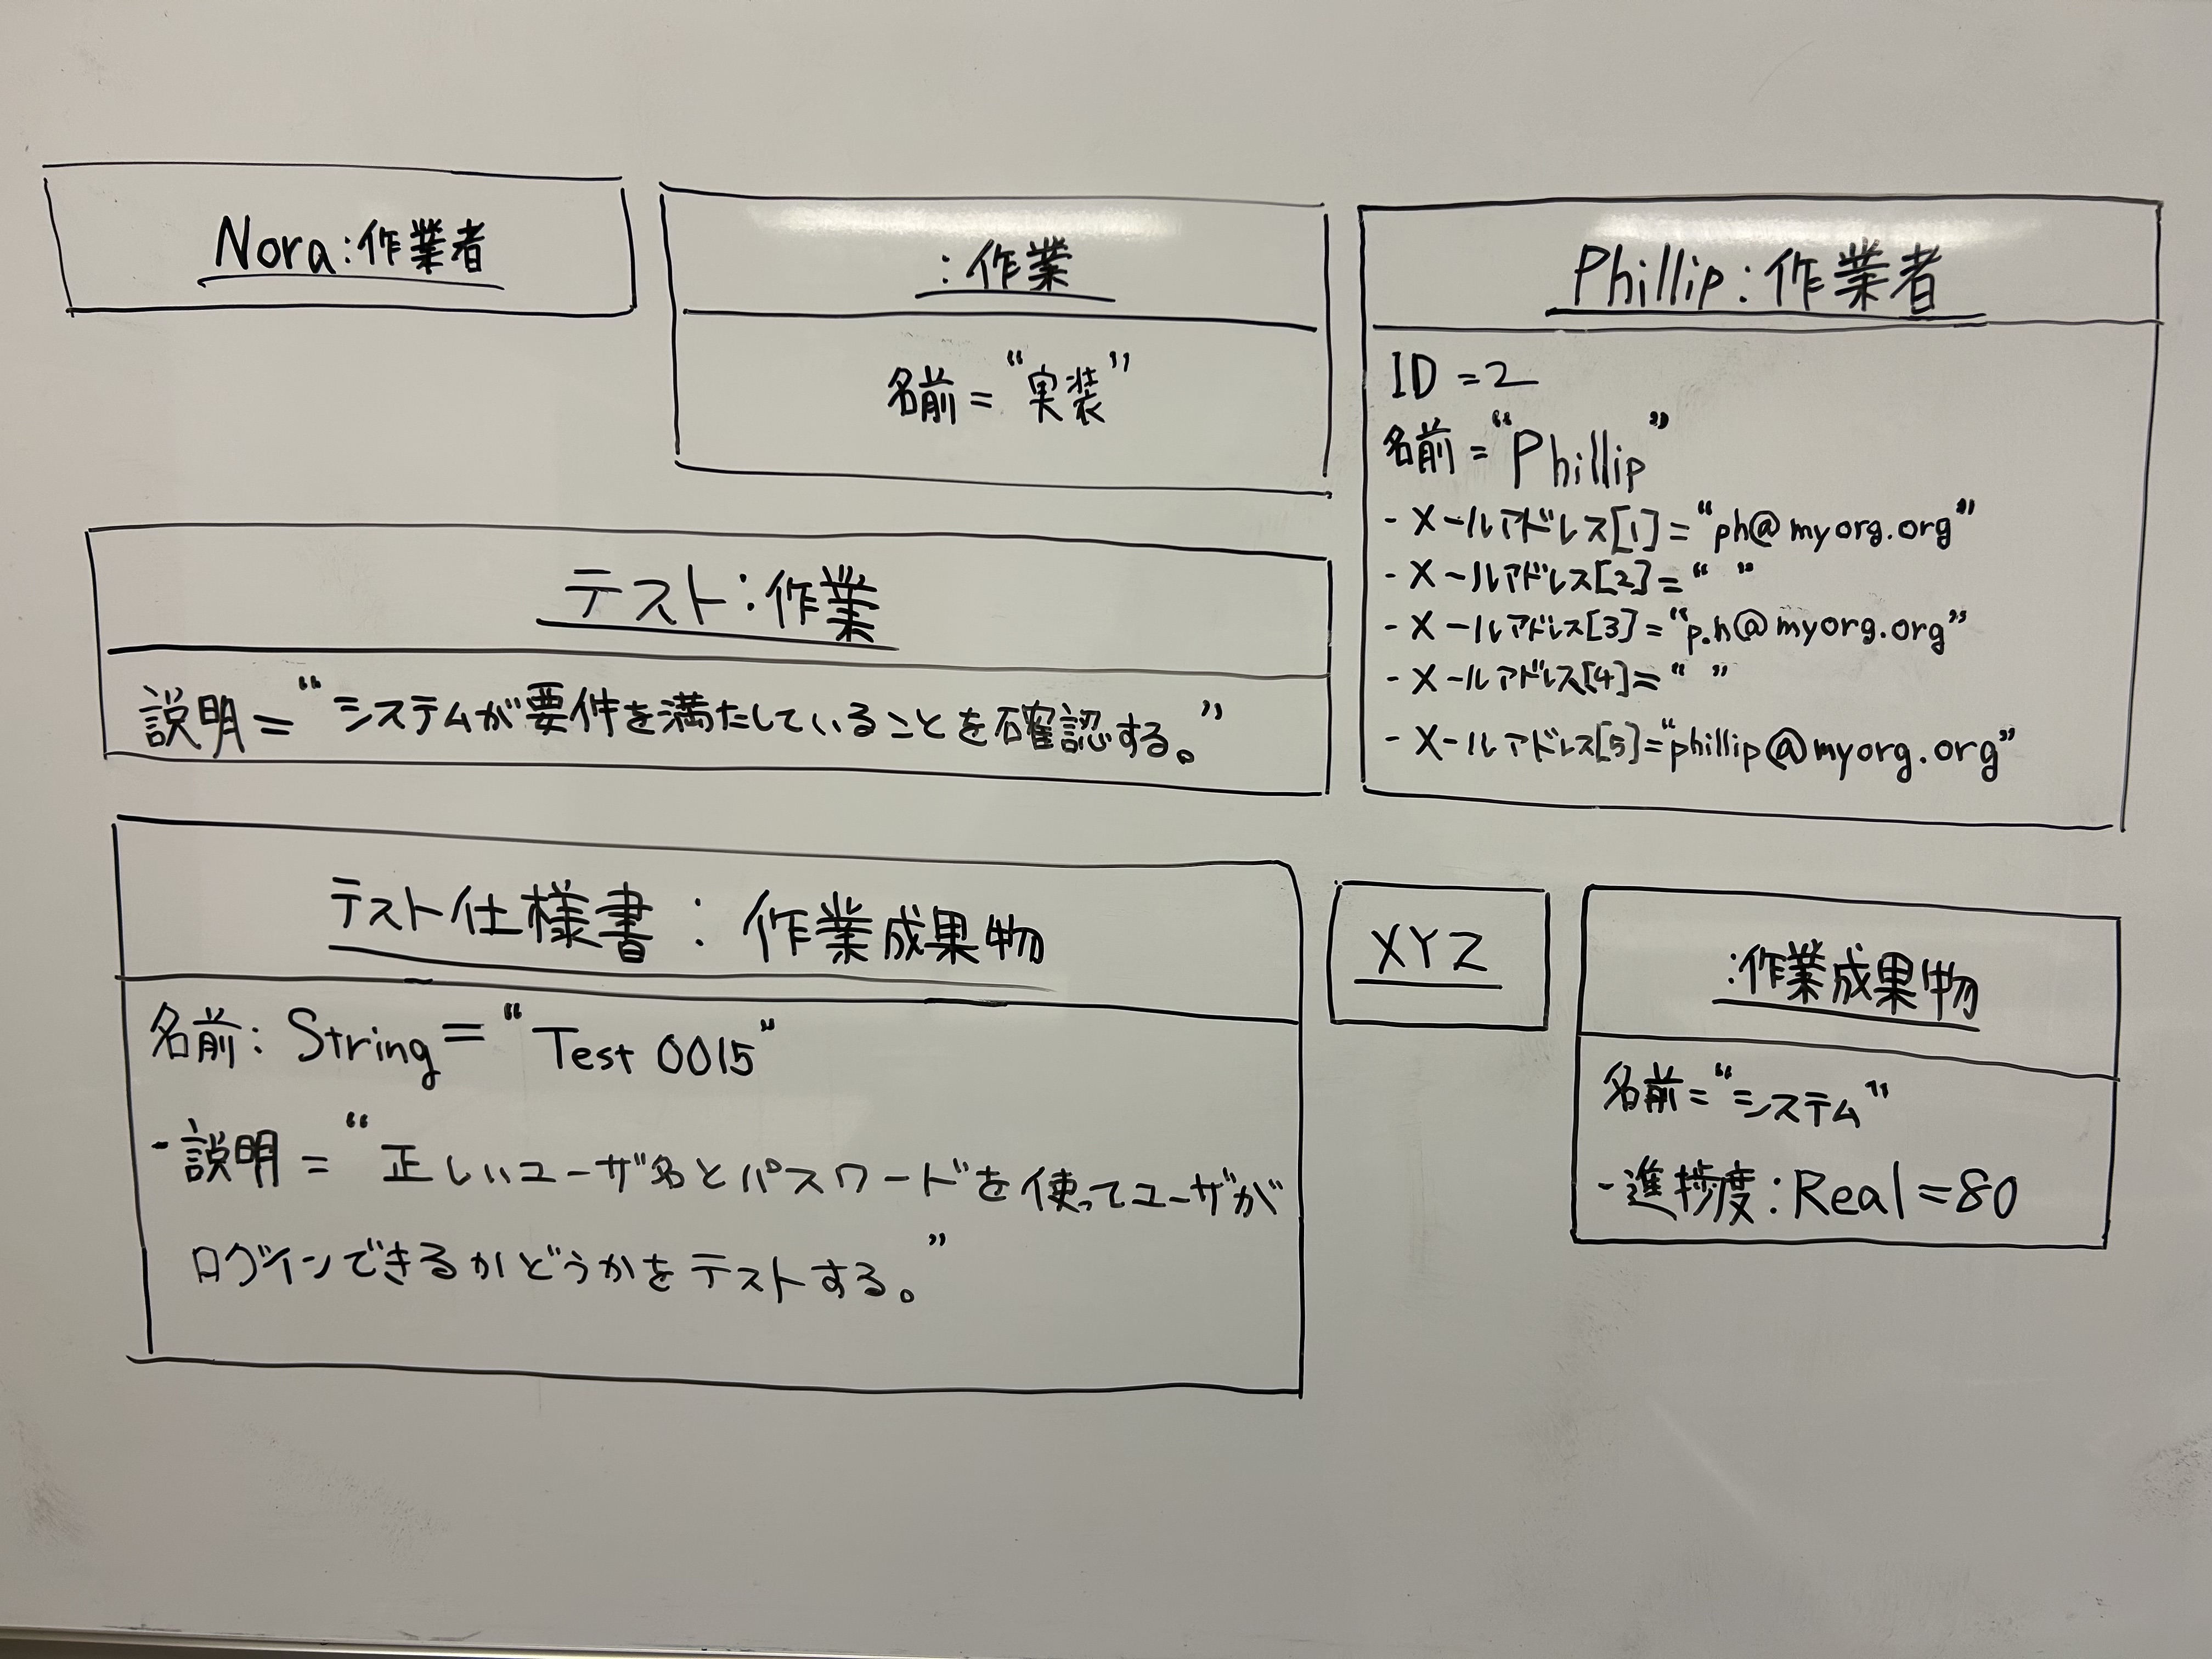 Nora:作業者
:作業
名前="実装"
Phillip:作業者
ID=2
名前="Phillip"
-メールアドレス[1]="ph@myorg.org"
-メールアドレス[2]=" "
-メールアドレス[3]="p.h@myorg.org"
-メールアドレス[4]=" "
-メールアドレス[5]="phillip@myorg.org"
テスト:作業
説明="システムが要件を満たしていることを確認する。"
テスト仕様書:作業成果物
名前:String="Test 0015"
-説明="正しいユーザ名とパスワードを使ってユーザが
ログインできるかどうかをテストする。"
XYZ
:作業成果物
名前="システム"
-進捗度:Real=80